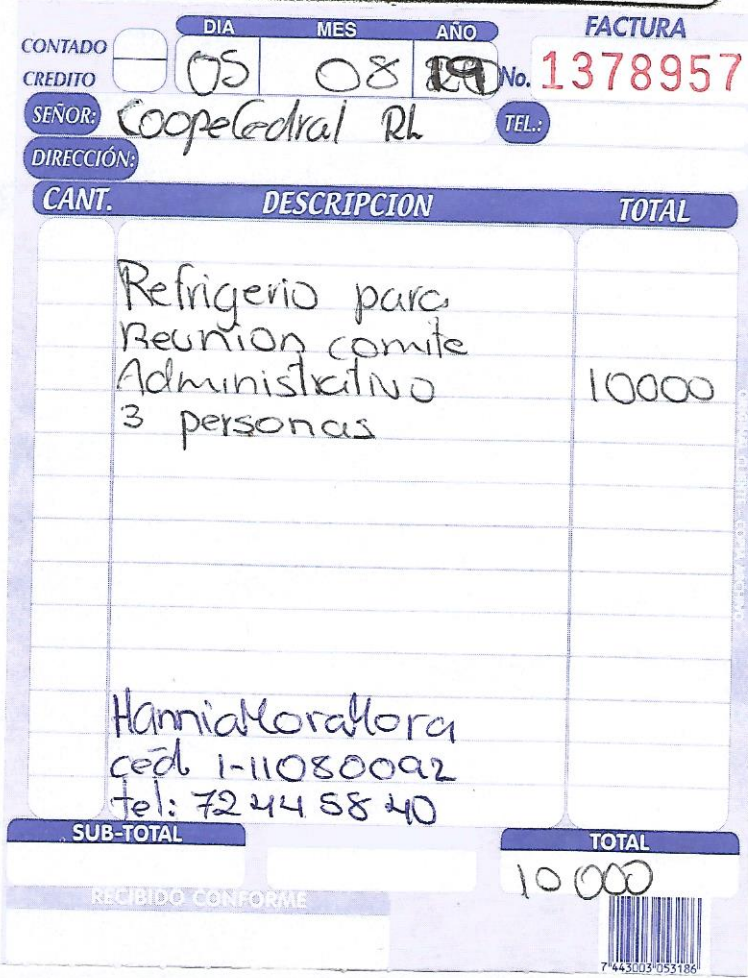 DIA MES AÑO FACTURA
CONTADO
CREDITO
05 08 No. 1378957
SEÑOR: CoopeCedral RL TEL.:
DIRECCIÓN:
CANT. DESCRIPCION TOTAL
Refrigerio para
Reunion comite
Administrativo 10000
3 personas
Hannia Mora Mora
ced 1-11080092
tel: 72 44 58 40
SUB-TOTAL TOTAL
10 000
RECIBIDO CONFORME
7 443003 053186